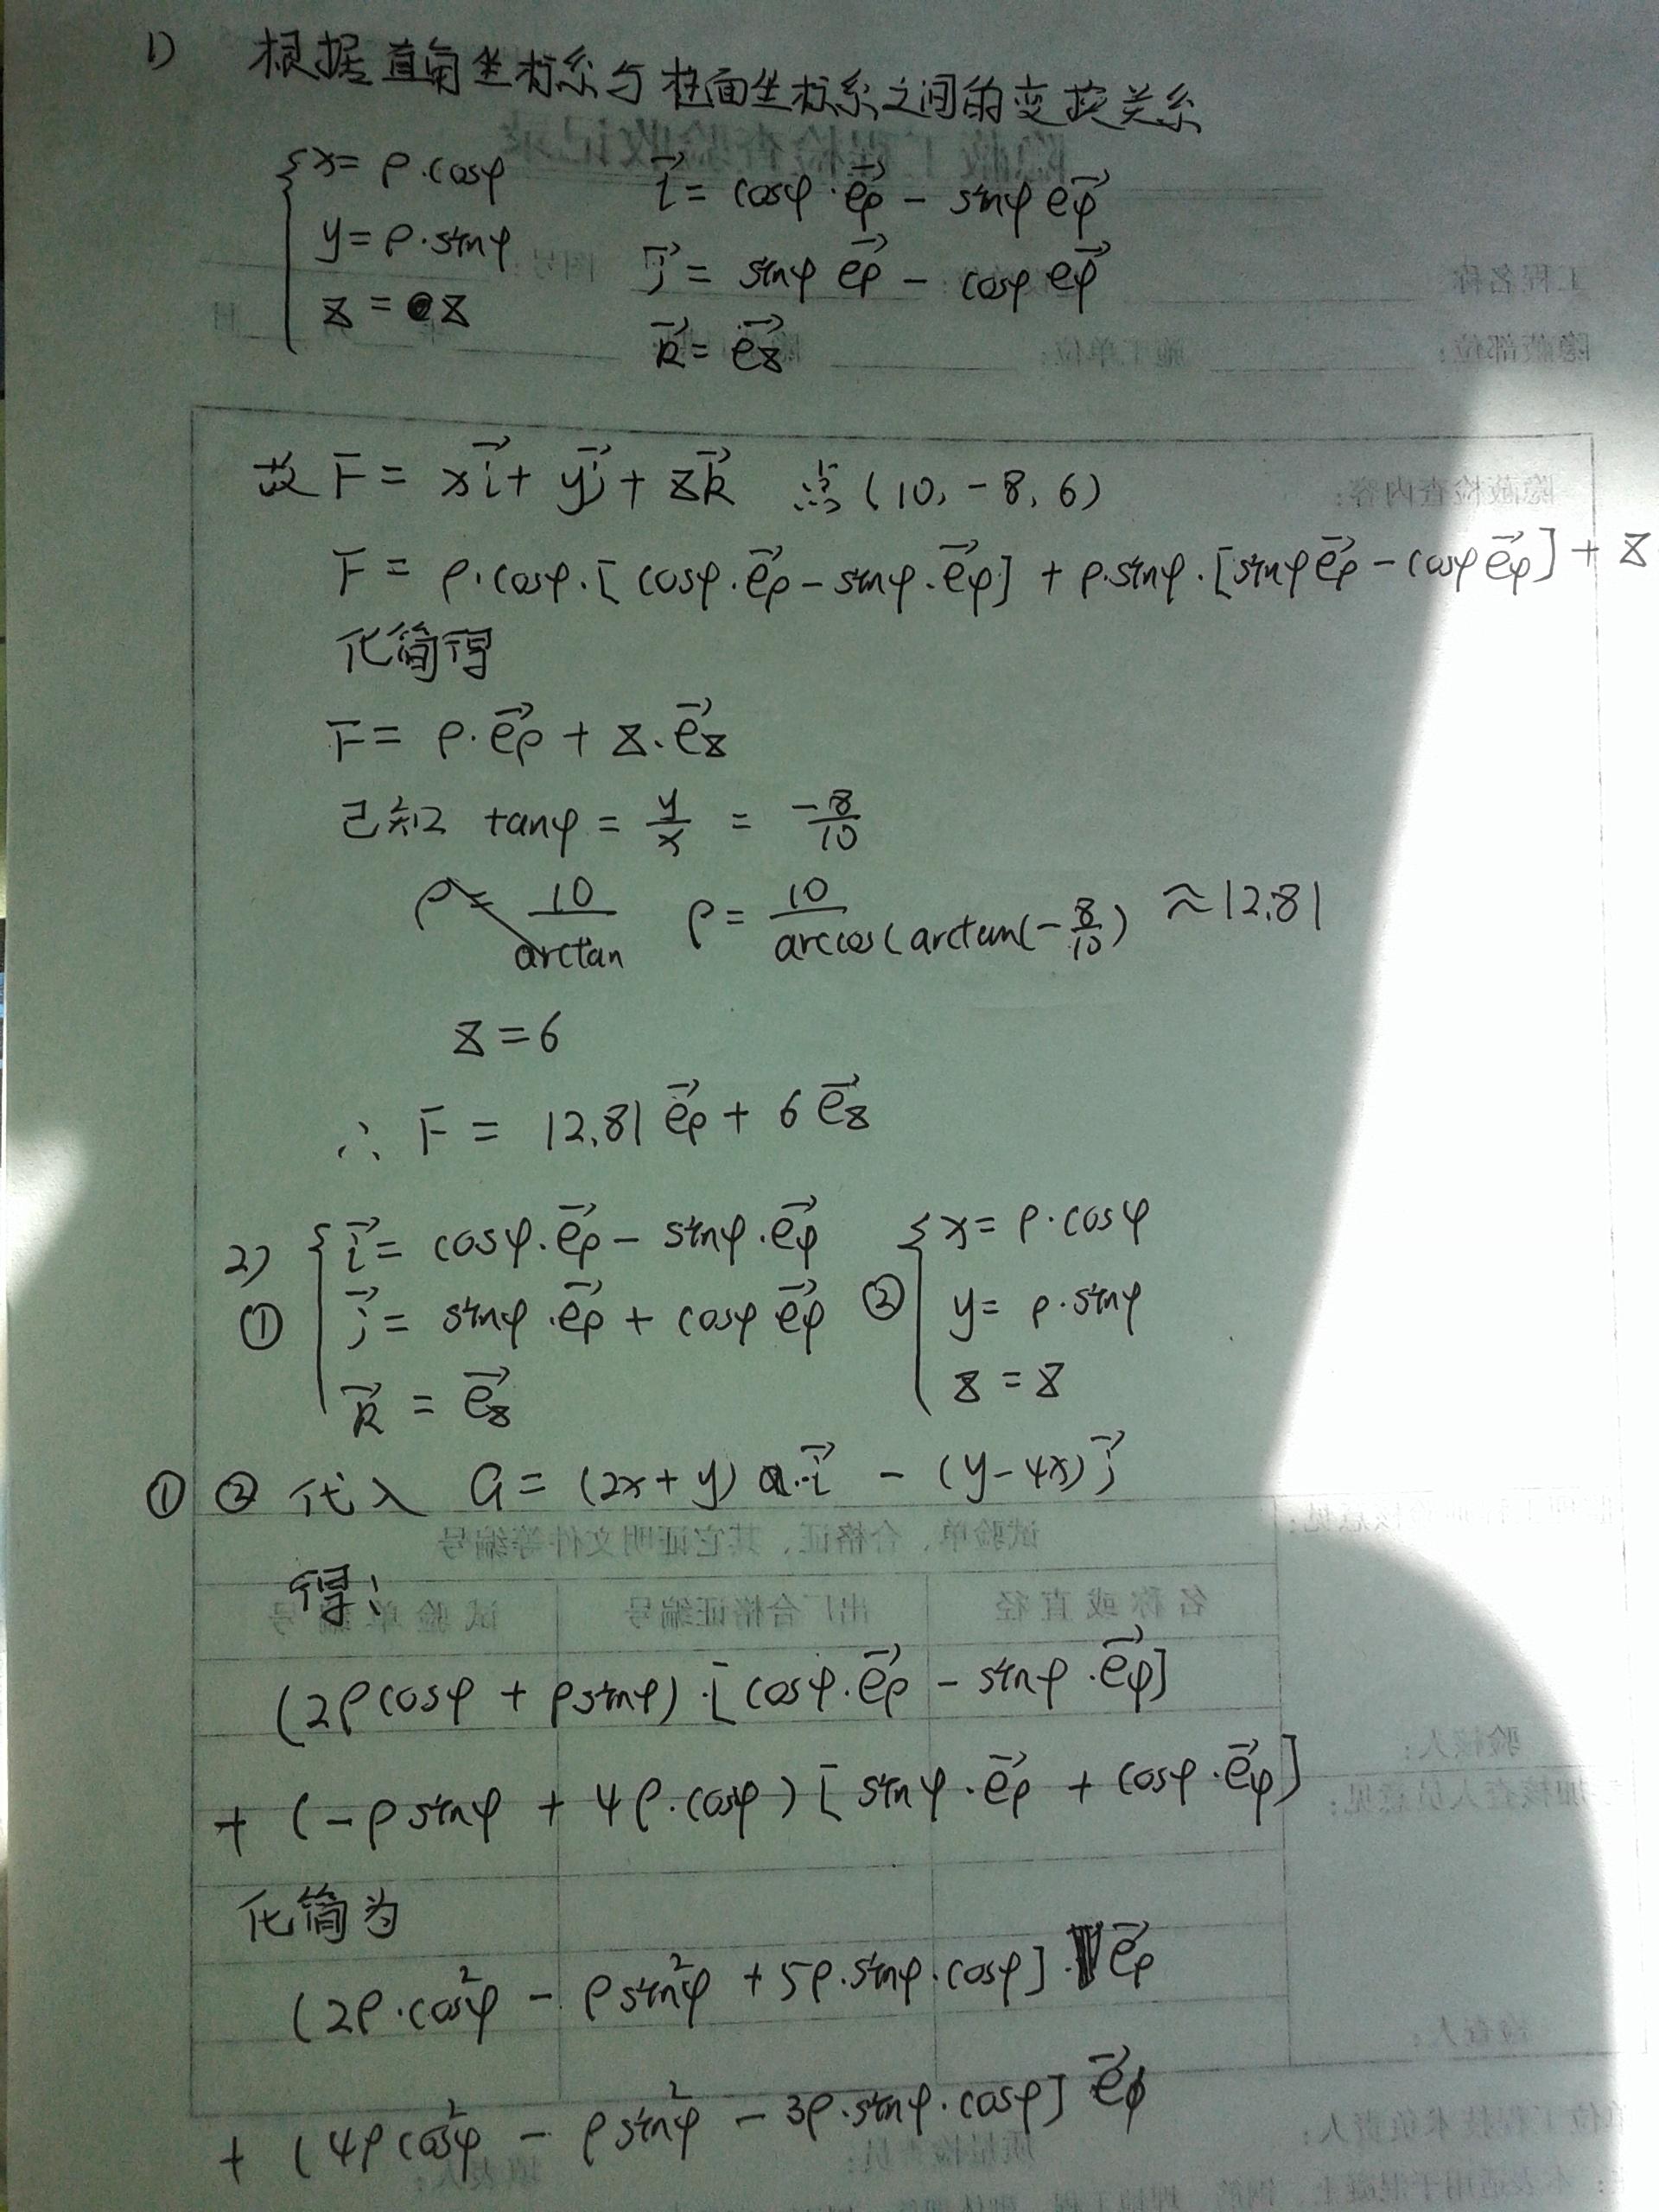 1) 根据直角坐标系与柱面坐标系之间的变换关系
{ x = ρ·cosφ    i⃗ = cosφ·e⃗ρ - sinφ e⃗φ
y = ρ·sinφ    j⃗ = sinφ e⃗ρ - cosφ e⃗φ
z = z    k⃗ = e⃗z
故 F = xi⃗ + yj⃗ + zk⃗ 点(10, -8, 6)
F = ρ·cosφ·[cosφ·e⃗ρ - sinφ·e⃗φ] + ρ·sinφ·[sinφ e⃗ρ - cosφ e⃗φ] + z
化简得
F = ρ·e⃗ρ + z·e⃗z
已知 tanφ = y/x = -8/10
ρ = 10/arctan    ρ = 10/arccos(arctan(-8/10) ≈ 12.81
z = 6
∴ F = 12.81 e⃗ρ + 6 e⃗z
2) { i⃗ = cosφ·e⃗ρ - sinφ·e⃗φ    { x = ρ·cosφ
① j⃗ = sinφ·e⃗ρ + cosφ e⃗φ    ② y = ρ·sinφ
k⃗ = e⃗z    z = z
① ② 代入 G = (2x+y)·i⃗ - (y-4x) j⃗
得:
(2ρcosφ + ρsinφ)·[cosφ·e⃗ρ - sinφ·e⃗φ]
+ (-ρsinφ + 4ρ·cosφ)[sinφ·e⃗ρ + cosφ·e⃗φ]
化简为
(2ρ·cos²φ - ρsin²φ + 5ρ·sinφ·cosφ]·e⃗ρ
+ (4ρcos²φ - ρsin²φ - 3ρ·sinφ·cosφ] e⃗φ